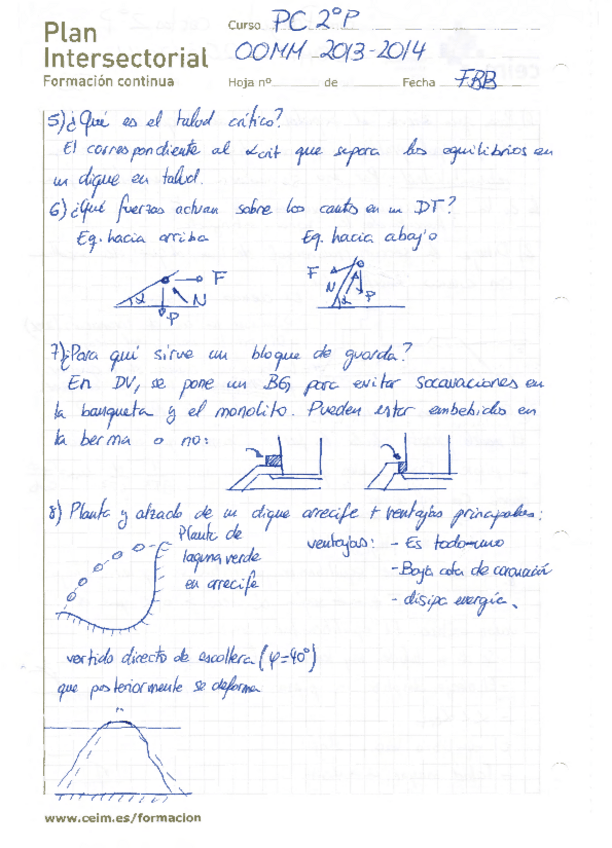 Plan
Intersectorial
Formación continua
Curso PC 2ºP
OOMM 2013-2014
Hoja nº de Fecha FBB
5) ¿Qué es el talud crítico?
El correspondiente al αcrit que separa los equilibrios en
un dique en talud.
6) ¿Qué fuerzas actúan sobre los cantos en un DT?
Eq. hacia arriba Eq. hacia abajo
F α N P
F N α P
7) ¿Para qué sirve un bloque de guarda?
En DV, se pone un BG, para evitar socavaciones en
la banqueta y el monolito. Pueden estar embebidos en
la berma o no:
8) Planta y alzado de un dique arrecife + ventajas principales:
Planta de
laguna verde
en arrecife
ventajas: - Es todo-uno
- Baja cota de coronación
- disipa energía.
vertido directo de escollera (φ=40º)
que posteriormente se deforma
www.ceim.es/formacion